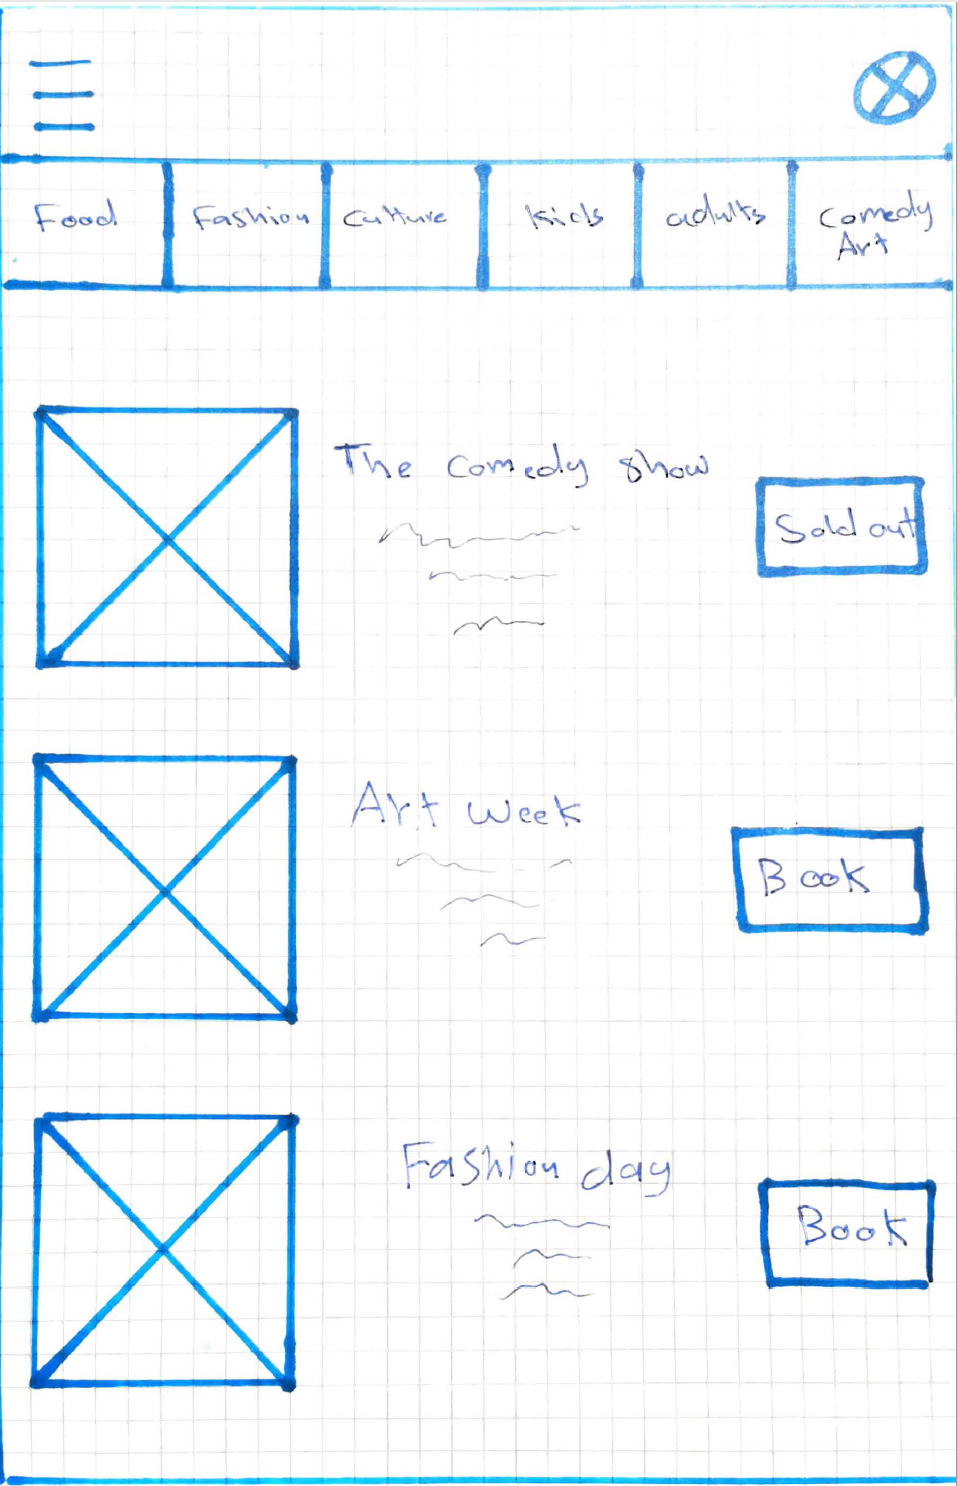 Food
Fashion
Culture
Kids
adults
Comedy
Art
The comedy show
Sold out
Art week
Book
Fashion day
Book